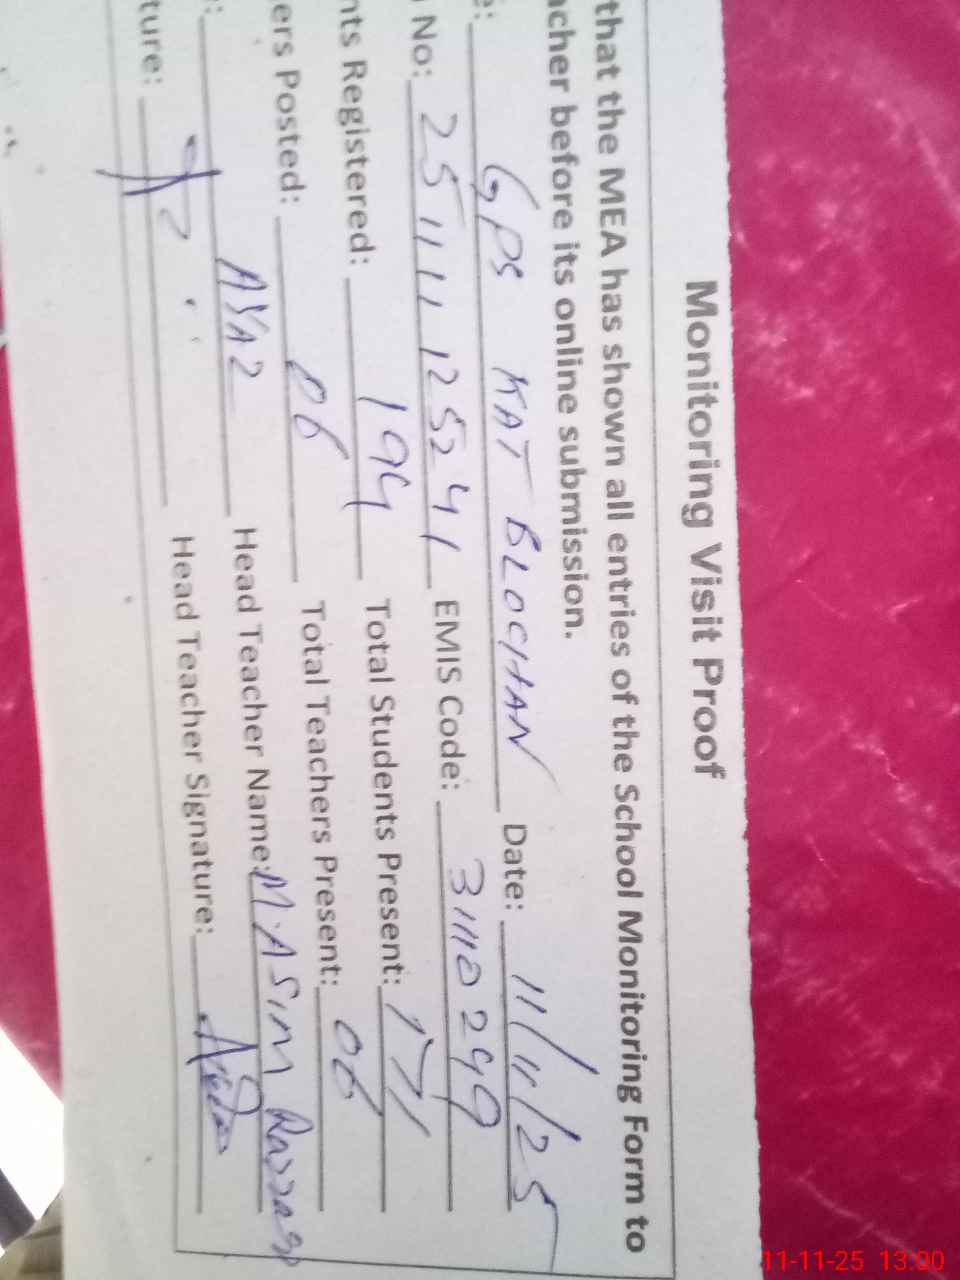 Monitoring Visit Proof
that the MEA has shown all entries of the School Monitoring Form to
acher before its online submission.
e: GPS KAT BLOCHAN Date: 11/11/25
No: 25111125241 EMIS Code: 31110249
nts Registered: 194 Total Students Present: 171
ers Posted: 06 Total Teachers Present: 06
: AYAZ Head Teacher Name: M. ASIM
ture: Head Teacher Signature:
11-11-25 13:00